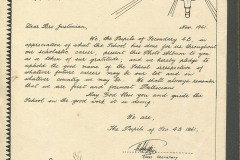 Dear Mrs
Nov. 1961
We the Pupils of Secondary 4B, in
appreciation of what the School has done for us throughout
our scholastic career, present this Photo Album to you
as a token of our gratitude, and we hereby pledge to
uphold the good name of the School irrespective of
whatever future career may be our lot and in
whatever country we may be. We shall always remember
that we are first and foremost
May God bless you and guide the
School in the good work it is doing
We are,
The Pupils of Sec. 4B 1961.